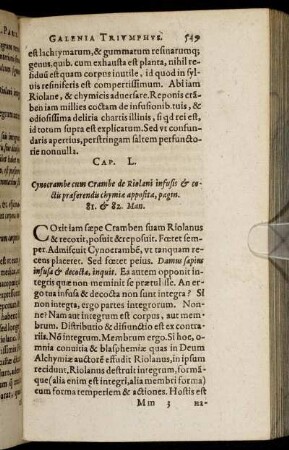 GALENIA TRIVMPHVS. 549
est lachrymarum, & gummatum resinarumq;
genus. quib. cum exhausta est planta, nihil re-
siduũ est quam corpus inutile, id quod in syl-
uis resiniferis est compertissimum. Abi iam
Riolane, & chymicis aduersare. Reponis crã-
ben iam millies coctam de infusionib. tuis, &
odiosissima delitia chartis illinis, si qd rei est,
id totum supra est explicatum. Sed vt confun-
daris apertius, perstringam saltem perfuncto-
rie nonnulla.
CAP. L.
Cynocrambe cum Crambe de Riolani infusis & co-
ctis præferendis chymiæ apposita, pagin.
81. & 82. Man.
COxit iam sæpe Cramben suam Riolanus
& recoxit, posuit & reposuit. Fœtet sem-
per. Admiscuit Cynocrambẽ, vt tanquam re-
cens placeret. Sed fœtet peius. Damus sæpius
infusa & decocta, inquis. Ea autem opponit in-
tegris quæ non meminit se præstulisse. An er-
go tua infusa & decocta non sunt integra? Si
non integra, ergo partes integrorum. Non-
ne? Nam aut integrum est corpus, aut mem-
brum. Distributio & disiunctio est ex contra-
riis. Nõ integrũ. Membrum ergo. Si hoc, o-
mnia conuitia & blasphemiæ quas in Deum
Alchymiæ auctorẽ effudit Riolanus, in ipsum
recidunt. Riolanus destruit integrum, formãq;
que (alia enim est integri, alia membri forma)
cum forma temperiem & actiones. Hostis est
Mm 3 na-